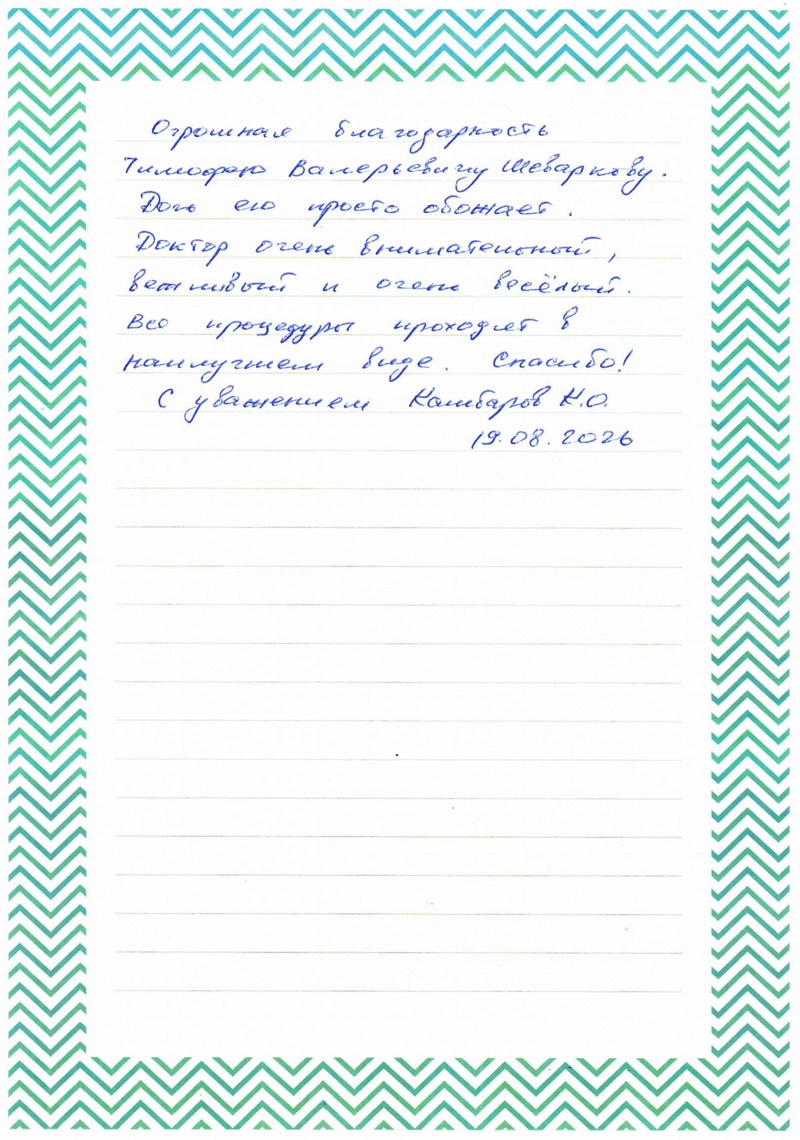 Огромная благодарность
Тимофею Валерьевичу Шеваркову.
Дочь его просто обожает.
Доктор очень внимательный,
вежливый и очень весёлый.
Все процедуры проходят в
наилучшем виде. Спасибо!
С уважением Камбаров К.О.
19.08.2026